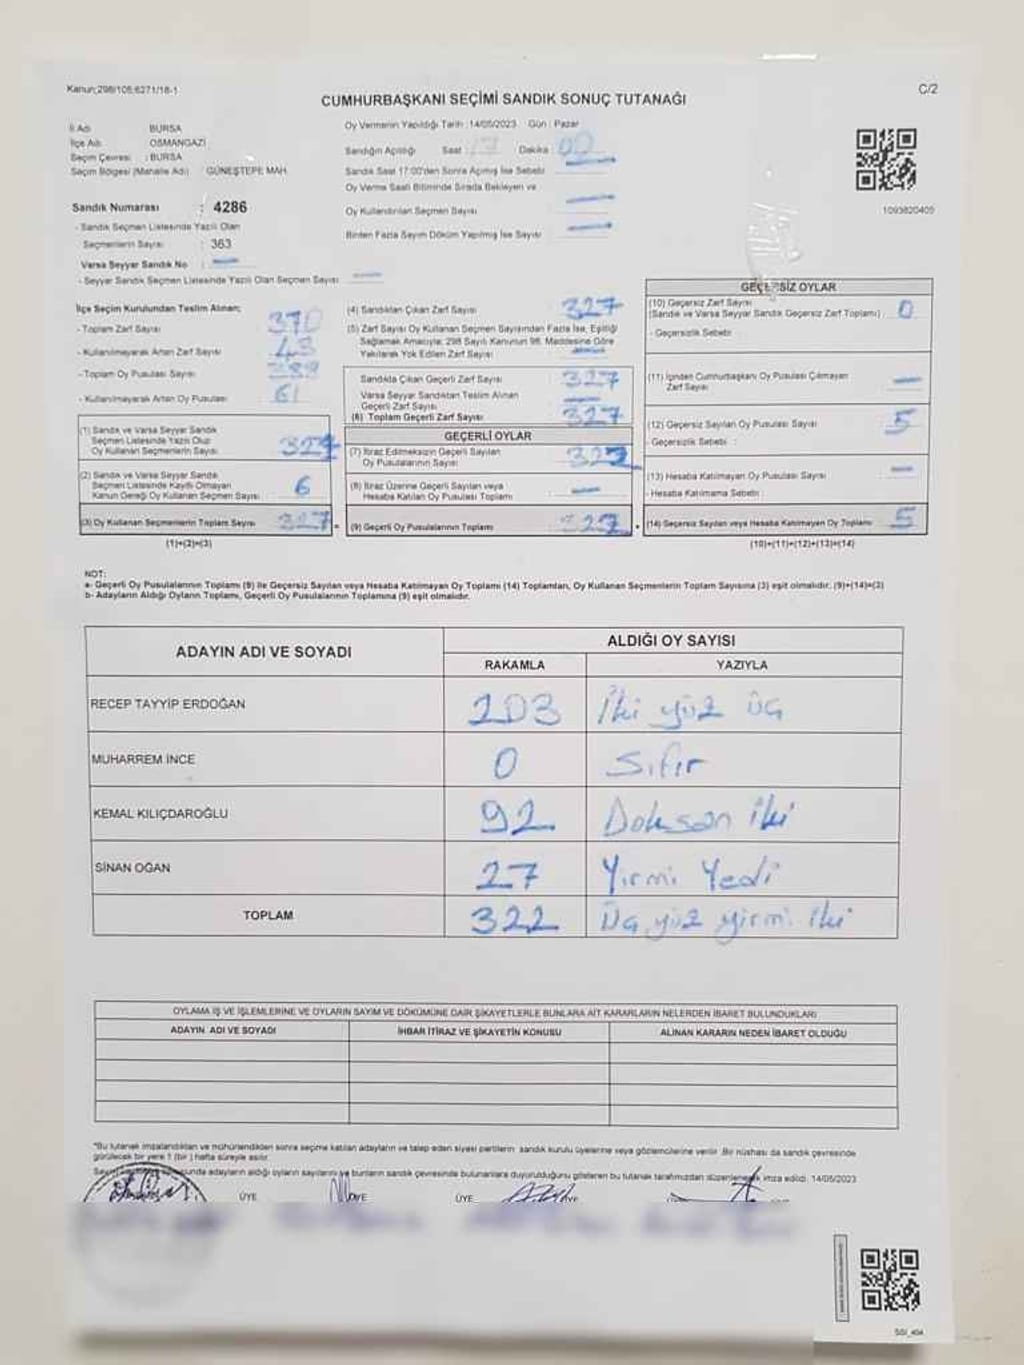 Kanun;298/105;6271/18-1
C/2
CUMHURBAŞKANI SEÇİMİ SANDIK SONUÇ TUTANAĞI
İl Adı BURSA
İlçe Adı OSMANGAZİ
Seçim Çevresi : BURSA
Seçim Bölgesi (Mahalle Adı) : GÜNEŞTEPE MAH.
Sandık Numarası : 4286
- Sandık Seçmen Listesinde Yazılı Olan
Seçmenlerin Sayısı : 363
Varsa Seyyar Sandık No :
- Seyyar Sandık Seçmen Listesinde Yazılı Olan Seçmen Sayısı :
Oy Vermenin Yapıldığı Tarih : 14/05/2023 Gün : Pazar
Sandığın Açıldığı Saat : 17 Dakika : 00
Sandık Saat 17:00'den Sonra Açılmış İse Sebebi
Oy Verme Saati Bitiminde Sırada Bekleyen ve
Oy Kullandırılan Seçmen Sayısı
Birden Fazla Sayım Döküm Yapılmış İse Sayısı
1093820405
İlçe Seçim Kurulundan Teslim Alınan;
- Toplam Zarf Sayısı 370
- Kullanılmayarak Artan Zarf Sayısı 43
- Toplam Oy Pusulası Sayısı
- Kullanılmayarak Artan Oy Pusulası 61
(1) Sandık ve Varsa Seyyar Sandık
Seçmen Listesinde Yazılı Olup
Oy Kullanan Seçmenlerin Sayısı
(2) Sandık ve Varsa Seyyar Sandık
Seçmen Listesinde Kayıtlı Olmayan
Kanun Gereği Oy Kullanan Seçmen Sayısı 6
(3) Oy Kullanan Seçmenlerin Toplam Sayısı 327
(1)+(2)=(3)
(4) Sandıktan Çıkan Zarf Sayısı 327
(5) Zarf Sayısı Oy Kullanan Seçmen Sayısından Fazla İse, Eşitliği
Sağlamak Amacıyla; 298 Sayılı Kanunun 98. Maddesine Göre
Yakılarak Yok Edilen Zarf Sayısı
Sandıkta Çıkan Geçerli Zarf Sayısı 327
Varsa Seyyar Sandıktan Teslim Alınan
Geçerli Zarf Sayısı
(6) Toplam Geçerli Zarf Sayısı 327
GEÇERLİ OYLAR
(7) İtiraz Edilmeksizin Geçerli Sayılan
Oy Pusulalarının Sayısı
(8) İtiraz Üzerine Geçerli Sayılan veya
Hesaba Katılan Oy Pusulası Toplamı
(9) Geçerli Oy Pusulalarının Toplamı
GEÇERSİZ OYLAR
(10) Geçersiz Zarf Sayısı
(Sandık ve Varsa Seyyar Sandık Geçersiz Zarf Toplamı) : 0
- Geçersizlik Sebebi :
(11) İçinden Cumhurbaşkanı Oy Pusulası Çıkmayan
Zarf Sayısı
(12) Geçersiz Sayılan Oy Pusulası Sayısı 5
- Geçersizlik Sebebi :
(13) Hesaba Katılmayan Oy Pusulası Sayısı
- Hesaba Katılmama Sebebi :
(14) Geçersiz Sayılan veya Hesaba Katılmayan Oy Toplamı : 5
(10)+(11)+(12)+(13)=(14)
NOT:
a- Geçerli Oy Pusulalarının Toplamı (9) ile Geçersiz Sayılan veya Hesaba Katılmayan Oy Toplamı (14) Toplamları, Oy Kullanan Seçmenlerin Toplam Sayısına (3) eşit olmalıdır. (9)+(14)=(3)
b- Adayların Aldığı Oyların Toplamı, Geçerli Oy Pusulalarının Toplamına (9) eşit olmalıdır.
ADAYIN ADI VE SOYADI ALDIĞI OY SAYISI
RAKAMLA YAZIYLA
RECEP TAYYİP ERDOĞAN 203 İki yüz üç
MUHARREM İNCE 0 Sıfır
KEMAL KILIÇDAROĞLU 92 Doksan iki
SİNAN OĞAN 27 Yirmi Yedi
TOPLAM 322 Üç yüz yirmi iki
OYLAMA İŞ VE İŞLEMLERİNE VE OYLARIN SAYIM VE DÖKÜMÜNE DAİR ŞİKAYETLERLE BUNLARA AİT KARARLARIN NELERDEN İBARET BULUNDUKLARI
ADAYIN ADI VE SOYADI İHBAR İTİRAZ VE ŞİKAYETİN KONUSU ALINAN KARARIN NEDEN İBARET OLDUĞU
*Bu tutanak imzalandıktan ve mühürlendikten sonra seçime katılan adayların ve talep eden siyasi partilerin sandık kurulu üyelerine veya gözlemcilerine verilir. Bir nüshası da sandık çevresinde
görülecek bir yere 1 (bir) hafta süreyle asılır.
adayların aldığı oyların sayılarını ve bunların sandık çevresinde bulunanlara duyurulduğunu gösteren bu tutanak tarafımızdan düzenlenerek imza edildi. 14/05/2023
ÜYE ÜYE ÜYE ÜYE